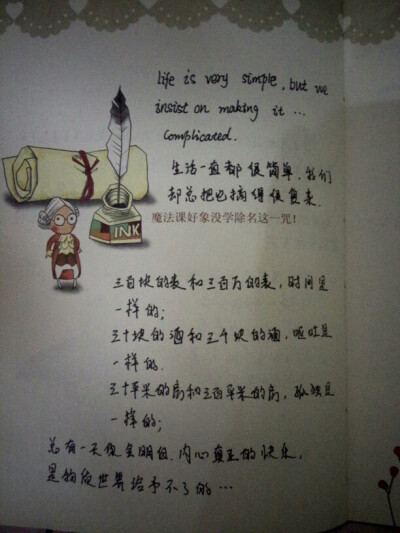 Life is very simple, but we
insist on making it ...
complicated.
生活一直都很简单，我们
却总把它搞得很复杂.
魔法课好象没学除名这一咒！
INK
三百块的表和三百万的表，时间是
一样的；
三十块的酒和三千块的酒，呕吐是
一样的.
三十平米的房和三百平米的房，孤独是
一样的；
总有一天你会明白.内心真正的快乐，
是物质世界给予不了的…